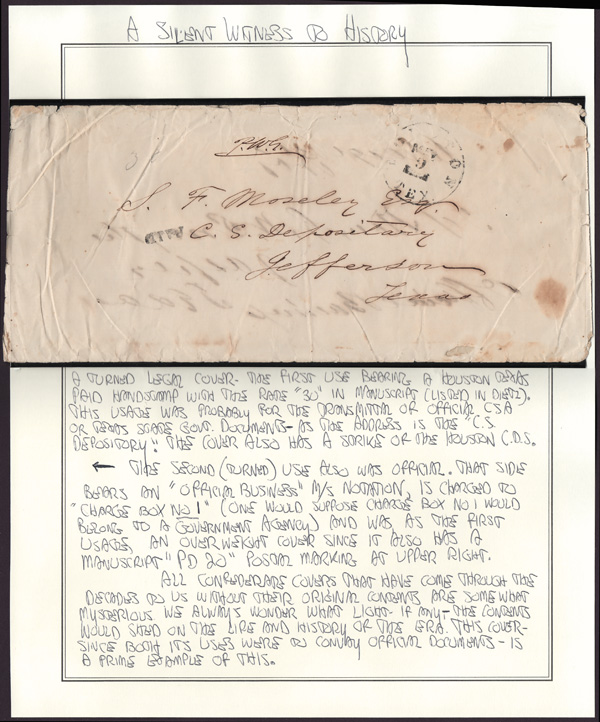 A SILENT WITNESS TO HISTORY
P.W.G.
TON
9
TEX
S. F. Moseley Esq.
PAID
C. S. Depositary
Jefferson
Texas
A TURNED LEGAL COVER - THE FIRST USE BEARING A HOUSTON TEXAS
PAID HANDSTAMP WITH THE RATE "30" IN MANUSCRIPT (LISTED IN DIETZ).
THIS USAGE WAS PROBABLY FOR THE TRANSMITTAL OF OFFICIAL CSA
OR TEXAS STATE GOVT. DOCUMENTS - AS THE ADDRESS IS THE "C.S.
DEPOSITORY". THE COVER ALSO HAS A STRIKE OF THE HOUSTON C.D.S.
← THE SECOND (TURNED) USE ALSO WAS OFFICIAL. THAT SIDE
BEARS AN "OFFICIAL BUSINESS" M/S NOTATION, IS CHARGED TO
"CHARGE BOX NO 1" (ONE WOULD SUPPOSE CHARGE BOX NO 1 WOULD
BELONG TO A GOVERNMENT AGENCY) AND WAS AS THE FIRST
USAGE, AN OVERWEIGHT COVER SINCE IT ALSO HAS A
MANUSCRIPT "PD 20" POSTAL MARKING AT UPPER RIGHT.
ALL CONFEDERATE COVERS THAT HAVE COME THROUGH THE
DECADES TO US WITHOUT THEIR ORIGINAL CONTENTS ARE SOMEWHAT
MYSTERIOUS. WE ALWAYS WONDER WHAT LIGHT - IF ANY - THE CONTENTS
WOULD SHED ON THE LIFE AND HISTORY OF THE ERA. THIS COVER -
SINCE BOTH ITS USES WERE TO CONVAY OFFICIAL DOCUMENTS - IS
A PRIME EXAMPLE OF THIS.